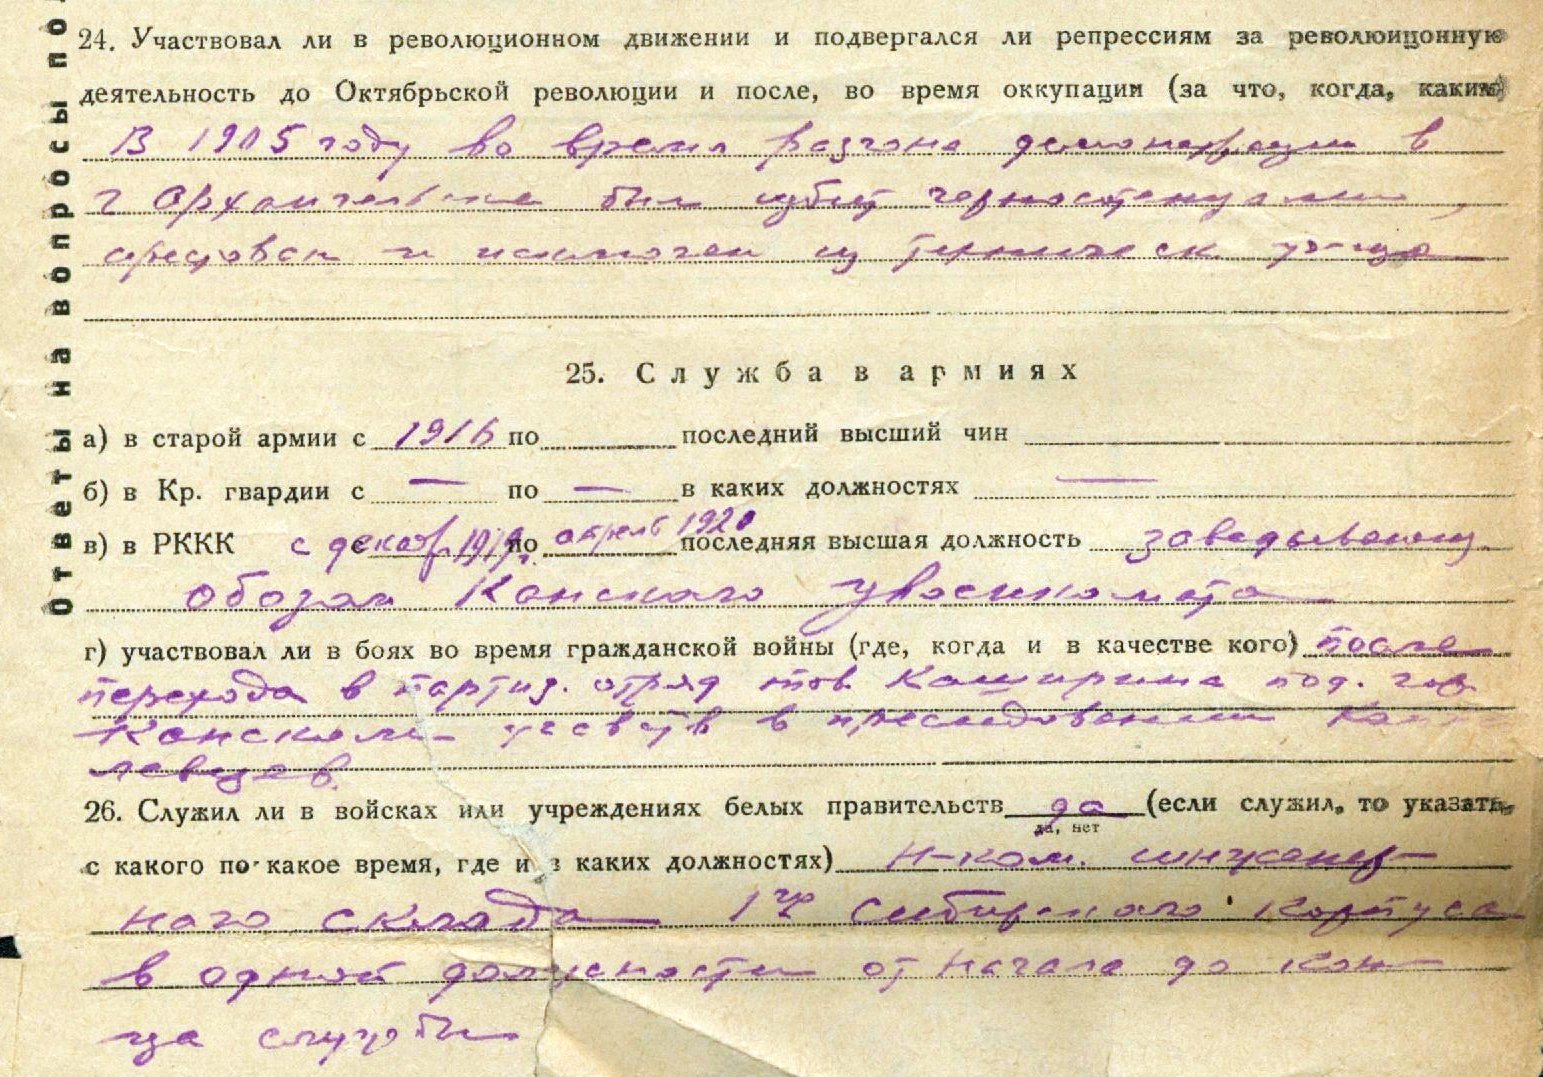 Ответы на вопросы по
24. Участвовал ли в революционном движении и подвергался ли репрессиям за революицонную
деятельность до Октябрьской революции и после, во время оккупации (за что, когда, каким)
В 1905 году во время разгона демонстрации в
г Архангельске был избит черносотенцами,
арестован и исключен из техническ уч-ща
25. Служба в армиях
а) в старой армии с 1916 по последний высший чин
б) в Кр. гвардии с — по — в каких должностях —
в) в РККК с декабр. 1919г. по апрель 1920 последняя высшая должность заведывающ.
обозом Канского увоенкомата
г) участвовал ли в боях во время гражданской войны (где, когда и в качестве кого) после
перехода в партиз. отряд тов. Каширина под. гор.
Канском участв в преследовании Капп
левцев.
26. Служил ли в войсках или учреждениях белых правительств да (если служил, то указать,
да, нет
с какого по какое время, где и в каких должностях) н-ком. инженер-
ного склада 1го Сибирского корпуса
в одной должности от начала до кон-
ца службы